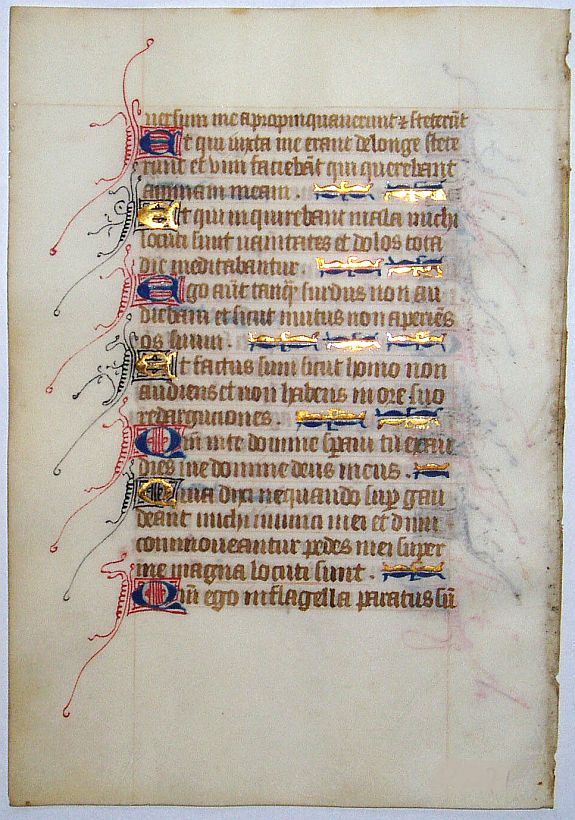 uersum me apropinquauerunt ⁊ steterūt
Et qui iuxta me erant de longe stete
runt et vim faciebāt qui querebant
animam meam .
Et qui inquirebant mala michi
locuti sunt uanitates et dolos tota
die meditabantur .
Ego aūt tanq̄ surdus non au
diebam et sicut mutus non aperiēs
os suum .
Et factus sum sicut homo non
audiens et non habens in ore suo
redarguciones .
Qm̄ in te domine sꝑaui tu exau
dies me domine deus meus .
Quia dixi nequando suꝑ gau
deant michi inimici mei et dum
commoueantur pedes mei super
me magna locuti sunt .
Qm̄ ego in flagella paratus sū